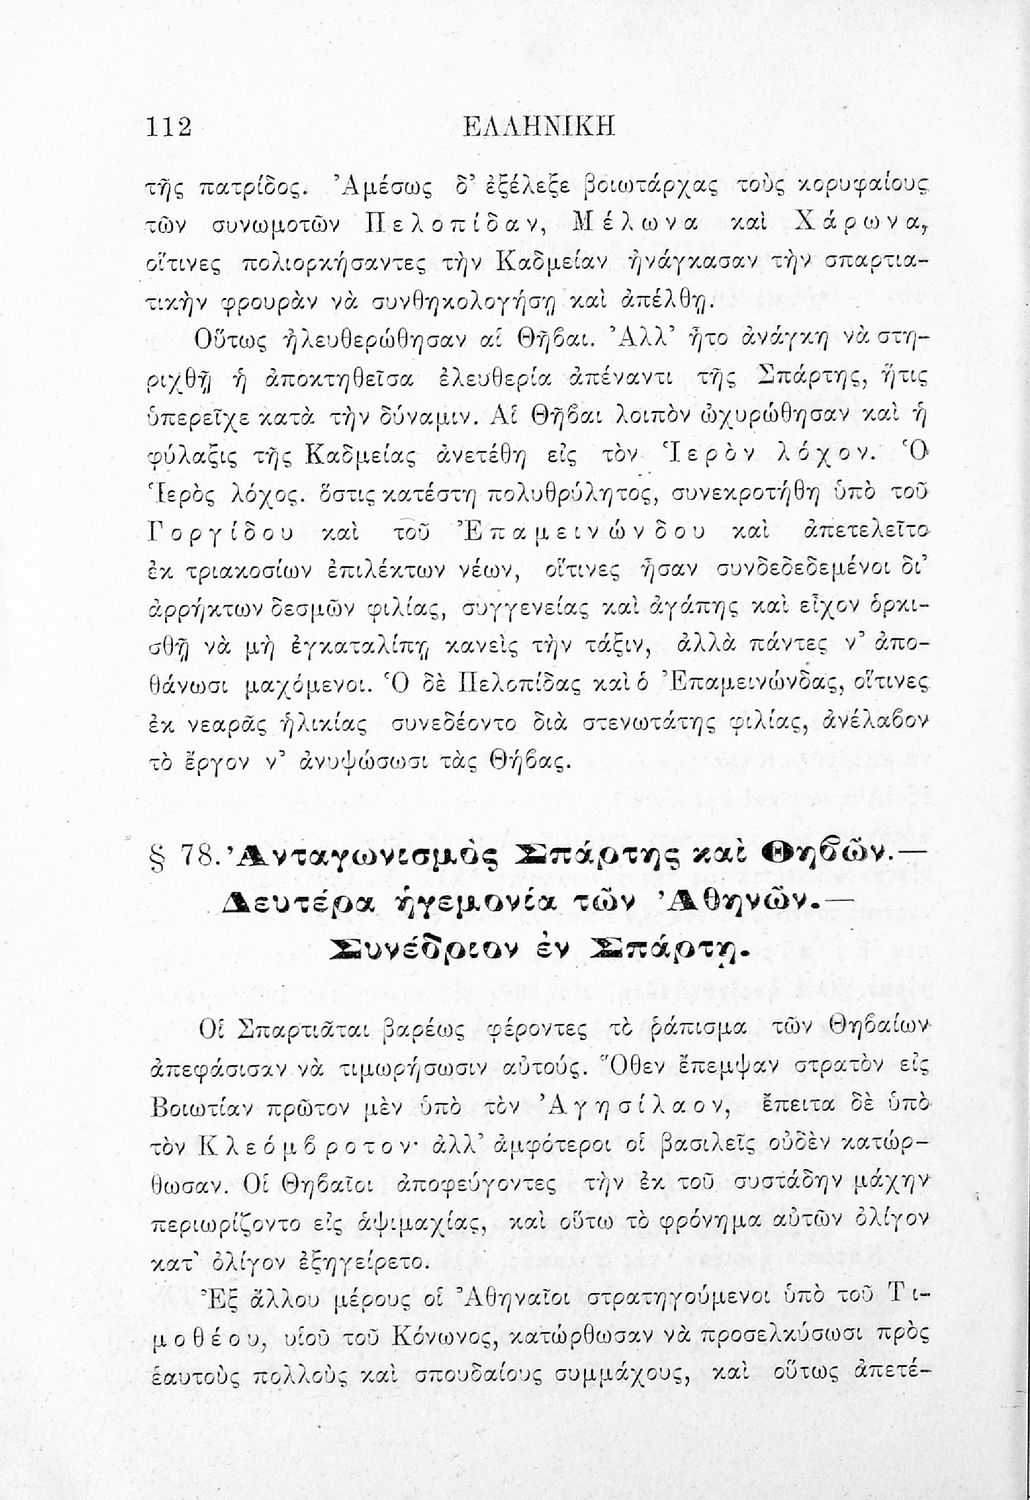 112 ΕΛΛΗΝΙΚΗ
τῆς πατρίδος. Ἀμέσως δ' ἐξέλεξε βοιωτάρχας τοὺς κορυφαίους
τῶν συνωμοτῶν Πελοπίδαν, Μέλωνα καὶ Χάρωνα,
οἵτινες πολιορκήσαντες τὴν Καδμείαν ἠνάγκασαν τὴν σπαρτια-
τικὴν φρουρὰν νὰ συνθηκολογήσῃ καὶ ἀπέλθῃ.
Οὕτως ἠλευθερώθησαν αἱ Θῆβαι. Ἀλλ' ἦτο ἀνάγκη νὰ στη-
ριχθῇ ἡ ἀποκτηθεῖσα ἐλευθερία ἀπέναντι τῆς Σπάρτης, ἥτις
ὑπερεῖχε κατὰ τὴν δύναμιν. Αἱ Θῆβαι λοιπὸν ὠχυρώθησαν καὶ ἡ
φύλαξις τῆς Καδμείας ἀνετέθη εἰς τὸν Ἱερὸν λόχον. Ὁ
Ἱερὸς λόχος. ὅστις κατέστη πολυθρύλητος, συνεκροτήθη ὑπὸ τοῦ
Γοργίδου καὶ τοῦ Ἐπαμεινώνδου καὶ ἀπετελεῖτο
ἐκ τριακοσίων ἐπιλέκτων νέων, οἵτινες ἦσαν συνδεδεδεμένοι δι'
ἀρρήκτων δεσμῶν φιλίας, συγγενείας καὶ ἀγάπης καὶ εἶχον ὁρκι-
σθῇ νὰ μὴ ἐγκαταλίπῃ κανεὶς τὴν τάξιν, ἀλλὰ πάντες ν' ἀπο-
θάνωσι μαχόμενοι. Ὁ δὲ Πελοπίδας καὶ ὁ Ἐπαμεινώνδας, οἵτινες
ἐκ νεαρᾶς ἡλικίας συνεδέοντο διὰ στενωτάτης φιλίας, ἀνέλαβον
τὸ ἔργον ν' ἀνυψώσωσι τὰς Θήβας.
§ 78. Ἀνταγωνισμὸς Σπάρτης καὶ Θηβῶν.—
Δευτέρα ἡγεμονία τῶν Ἀθηνῶν.—
Συνέδριον ἐν Σπάρτῃ.
Οἱ Σπαρτιᾶται βαρέως φέροντες τὸ ῥάπισμα τῶν Θηβαίων
ἀπεφάσισαν νὰ τιμωρήσωσιν αὐτούς. Ὅθεν ἔπεμψαν στρατὸν εἰς
Βοιωτίαν πρῶτον μὲν ὑπὸ τὸν Ἀγησίλαον, ἔπειτα δὲ ὑπὸ
τὸν Κλεόμβροτον· ἀλλ' ἀμφότεροι οἱ βασιλεῖς οὐδὲν κατώρ-
θωσαν. Οἱ Θηβαῖοι ἀποφεύγοντες τὴν ἐκ τοῦ συστάδην μάχην
περιωρίζοντο εἰς ἁψιμαχίας, καὶ οὕτω τὸ φρόνημα αὐτῶν ὀλίγον
κατ' ὀλίγον ἐξηγείρετο.
Ἐξ ἄλλου μέρους οἱ Ἀθηναῖοι στρατηγούμενοι ὑπὸ τοῦ Τι-
μοθέου, υἱοῦ τοῦ Κόνωνος, κατώρθωσαν νὰ προσελκύσωσι πρὸς
ἑαυτοὺς πολλοὺς καὶ σπουδαίους συμμάχους, καὶ οὕτως ἀπετέ-